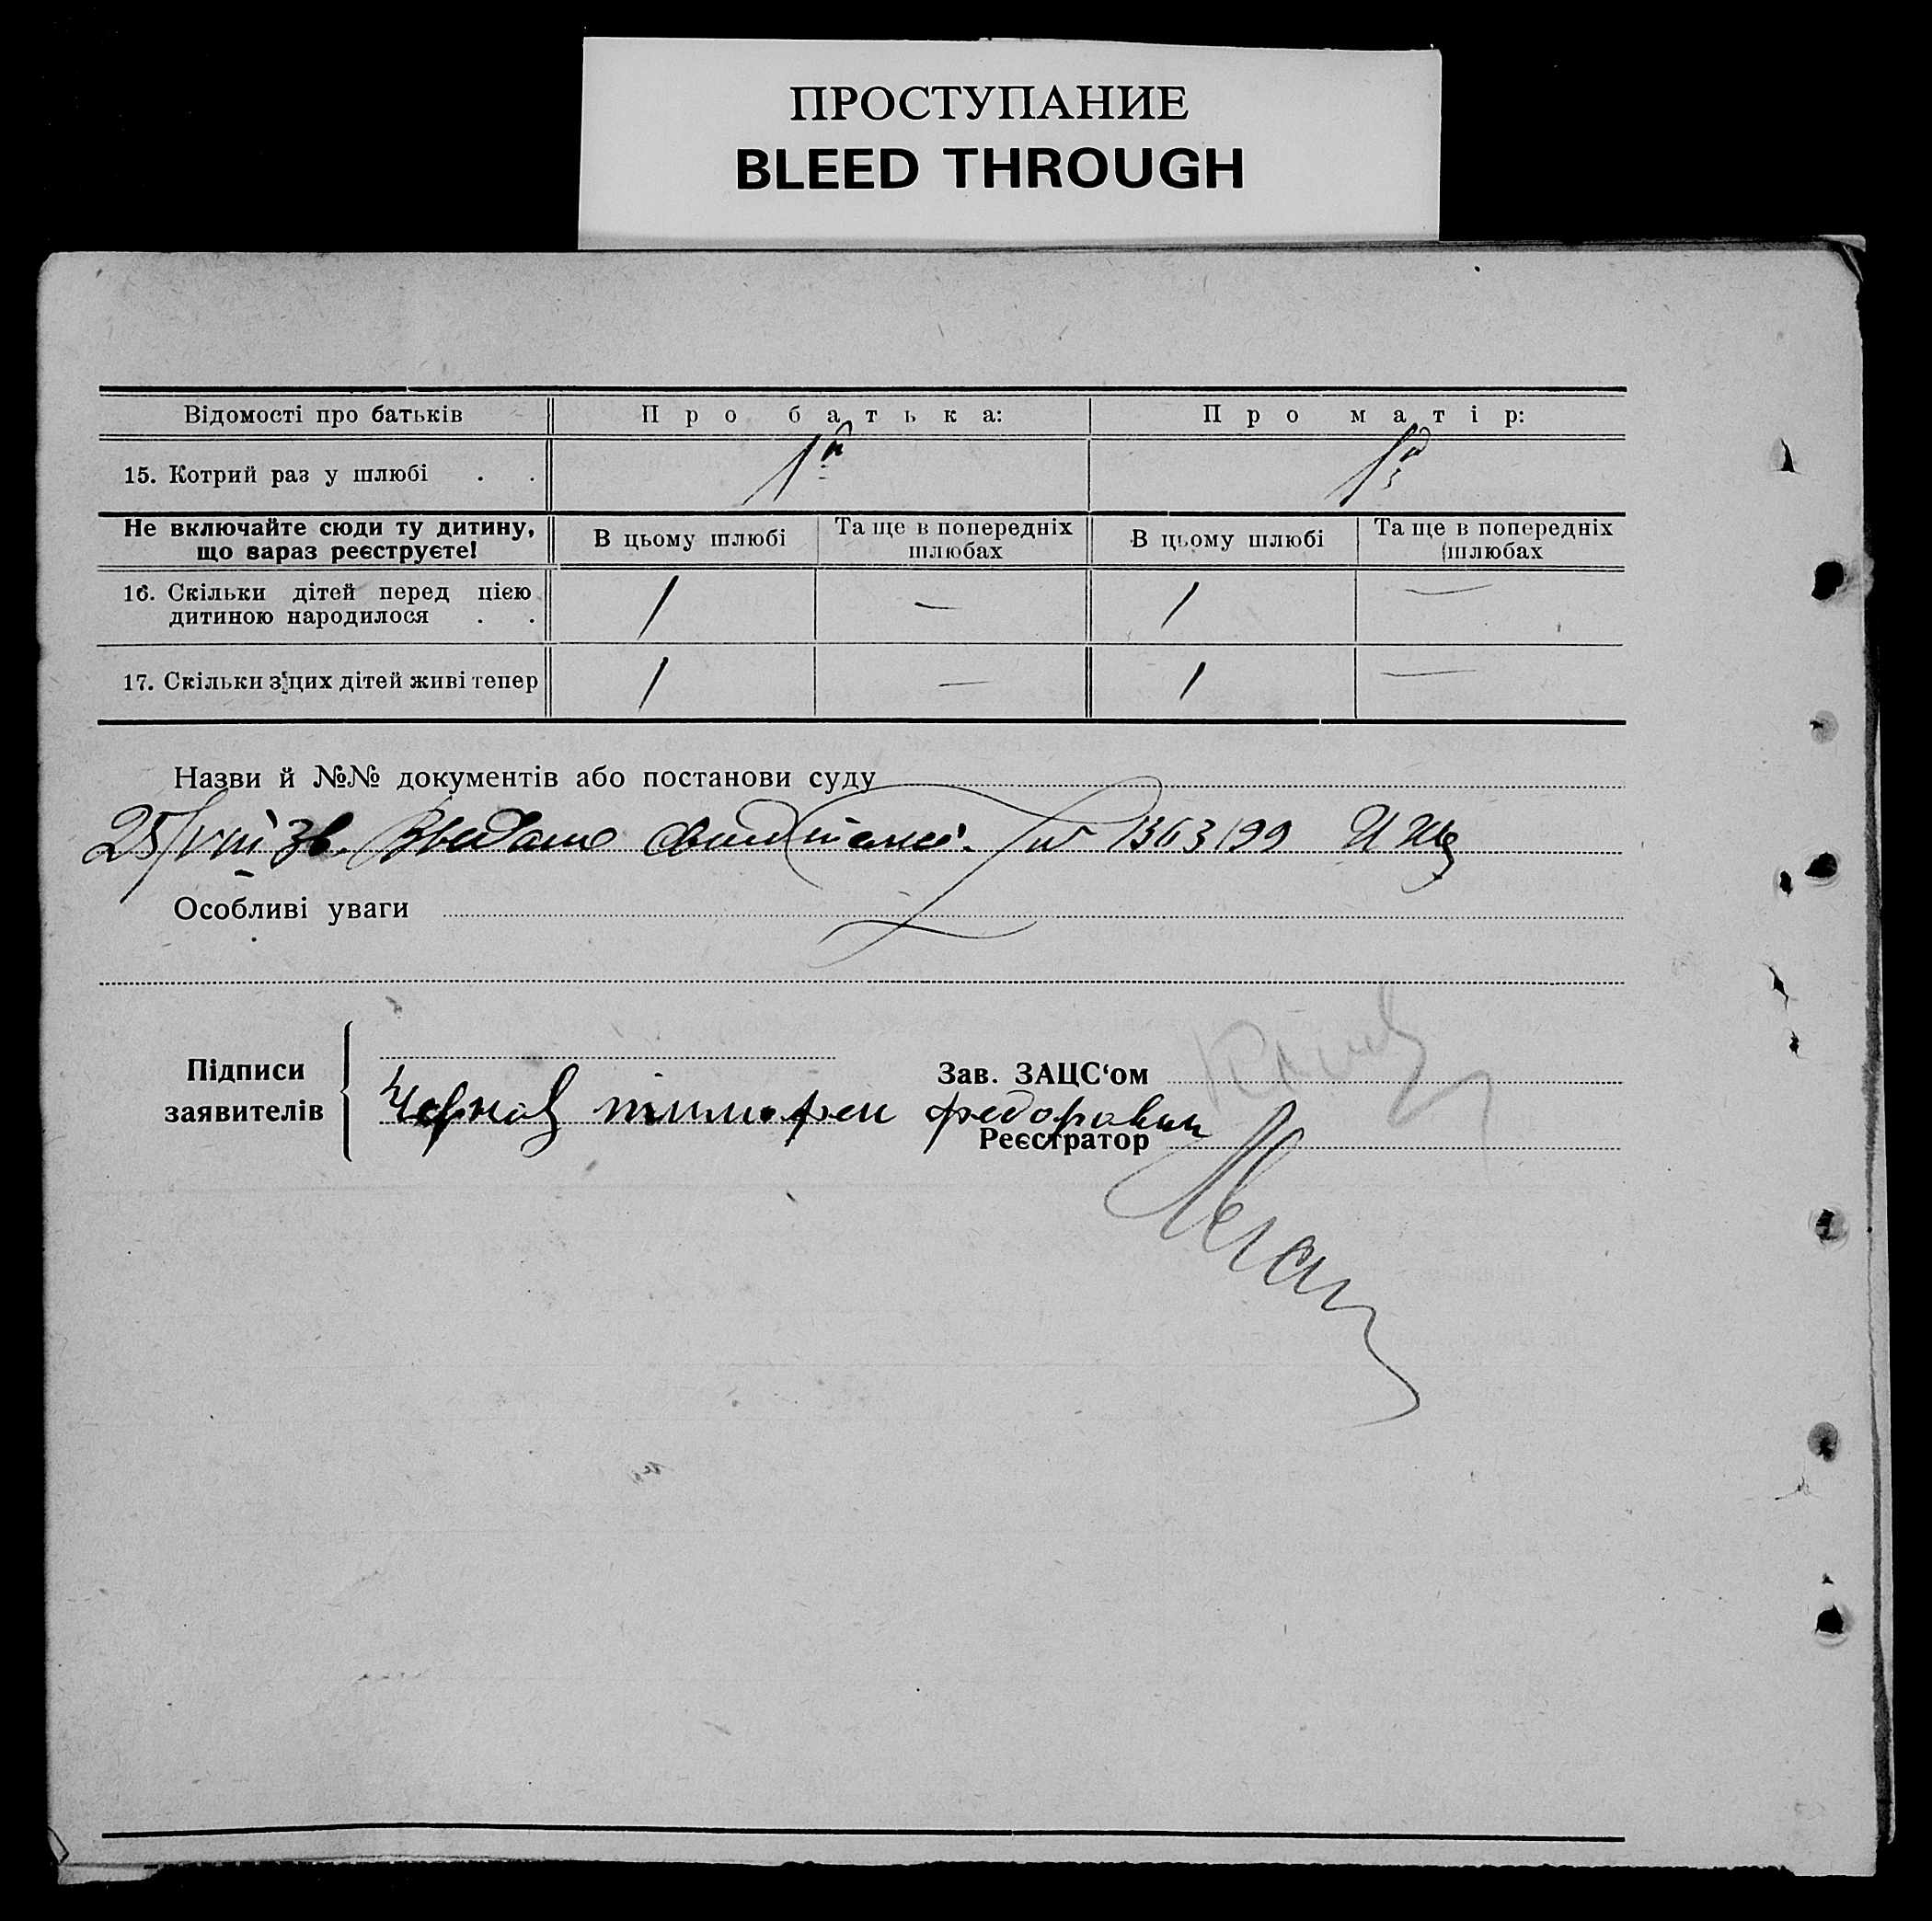 ПРОСТУПАНИЕ
BLEED THROUGH
Відомості про батьків
Про батька:
Про матір:
15. Котрий раз у шлюбі . .
1й
1й
Не включайте сюди ту дитину,
що зараз реєструєте!
В цьому шлюбі
Та ще в попередніх
шлюбах
В цьому шлюбі
Та ще в попередніх
шлюбах
16. Скільки дітей перед цією
дитиною народилося . .
1
—
1
—
17. Скільки з цих дітей живі тепер
1
—
1
—
Назви й №№ документів або постанови суду
25/VIII
Особливі уваги
Підписи
заявителів
Зав. ЗАЦС‘ом
Чернов тимофеи федорович
Реєстратор